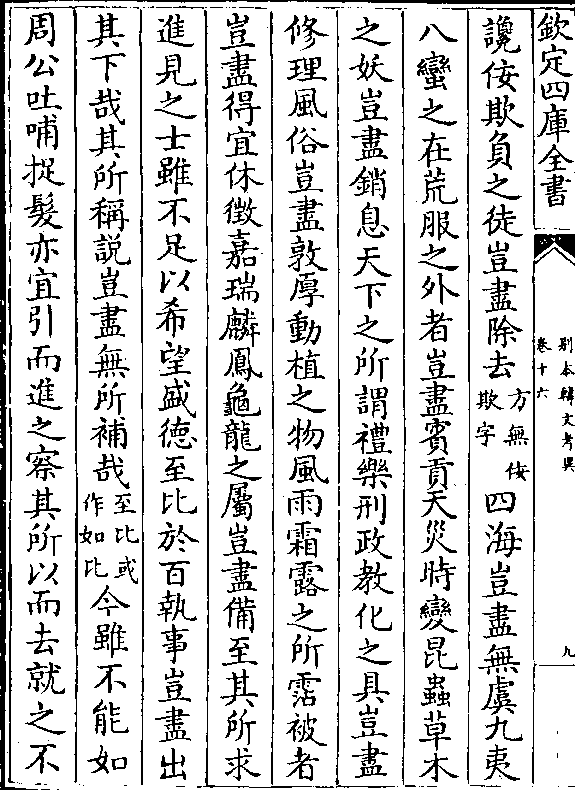 欽定四庫全書
别本韓文考異
卷十六
九
讒佞欺負之徒豈盡除去方無佞欺字四海豈盡無虞九夷
八蠻之在荒服之外者豈盡賓貢天災時變昆蟲草木
之妖豈盡銷息天下之所謂禮樂刑政教化之具豈盡
修理風俗豈盡敦厚動植之物風雨霜露之所霑被者
豈盡得宜休徵嘉瑞麟鳳龜龍之屬豈盡備至其所求
進見之士雖不足以希望盛德至比於百執事豈盡出
其下哉其所稱說豈盡無所補哉至比或作如比今雖不能如
周公吐哺捉髮亦宜引而進之察其所以而去就之不